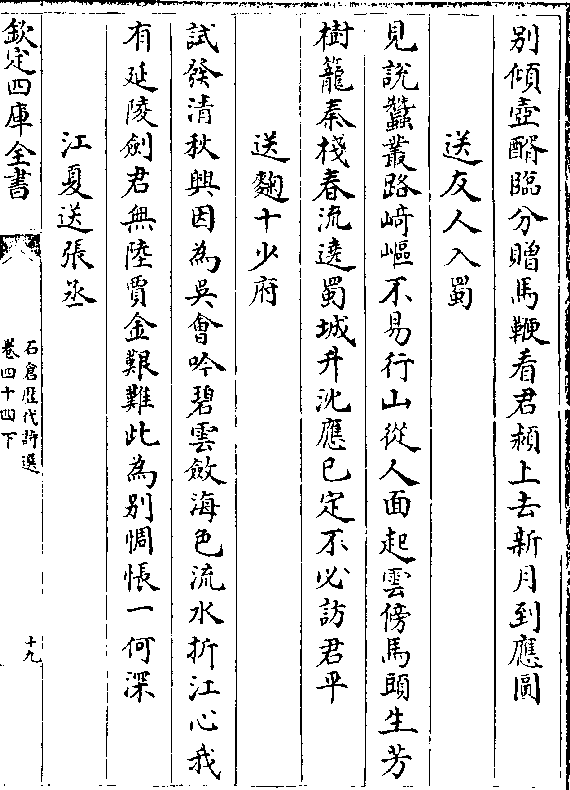 别傾壺醑臨分贈馬鞭看君潁上去新月到應圓
送友人入蜀
見說蠶叢路﨑嶇不易行山從人面起雲傍馬頭生芳
樹籠秦棧春流遶蜀城升沈應已定不必訪君平
送麴十少府
試發清秋興因為吳會吟碧雲斂海色流水折江心我
有延陵劍君無陸賈金艱難此為别惆悵一何深
江夏送張丞
欽定四庫全書
石倉歴代詩選
卷四十四下
十九